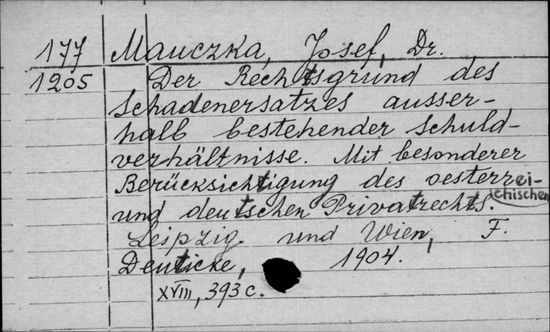 177 Mauczka, Josef, Dr.
1205 Der Rechtsgrund des
Schadenersatzes ausser-
halb bestehender Schuld-
verhältnisse. Mit besonderer
Berücksichtigung des oesterrei-
chischen
und deutschen Privatrechts.
Leipzig und Wien, F.
Deuticke, 1904.
XVIII, 393 c.